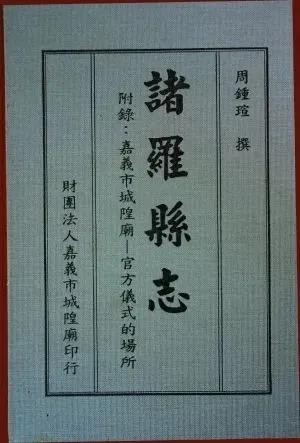 周鍾瑄 撰
諸羅縣志
附錄：嘉義市城隍廟—官方儀式的場所
財團法人嘉義市城隍廟印行